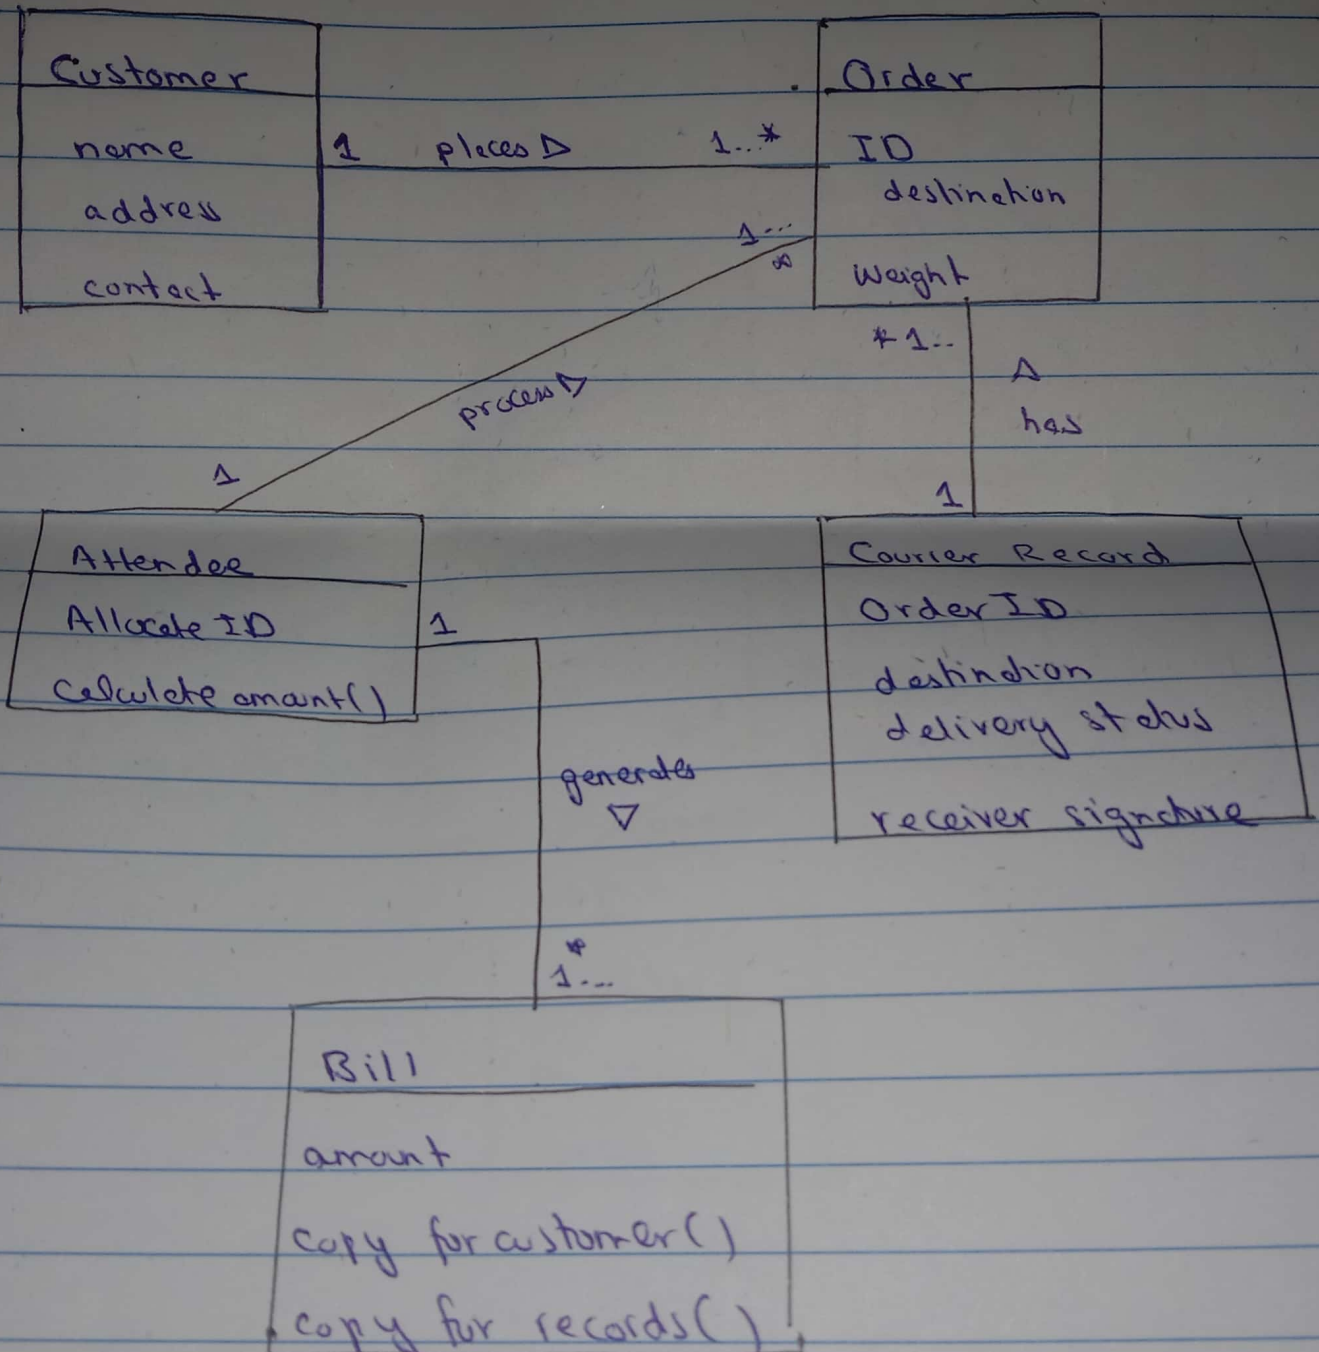 Customer
name
address
contact
1 places ▷ 1..*
Order
ID
destination
Weight
1...
*
process ▷
1
* 1..
△
has
1
Attendee
Allocate ID
Calculate amount()
1
generates
▽
*
1...
Courier Record
Order ID
destination
delivery status
receiver signature
Bill
amount
copy for customer()
copy for records()